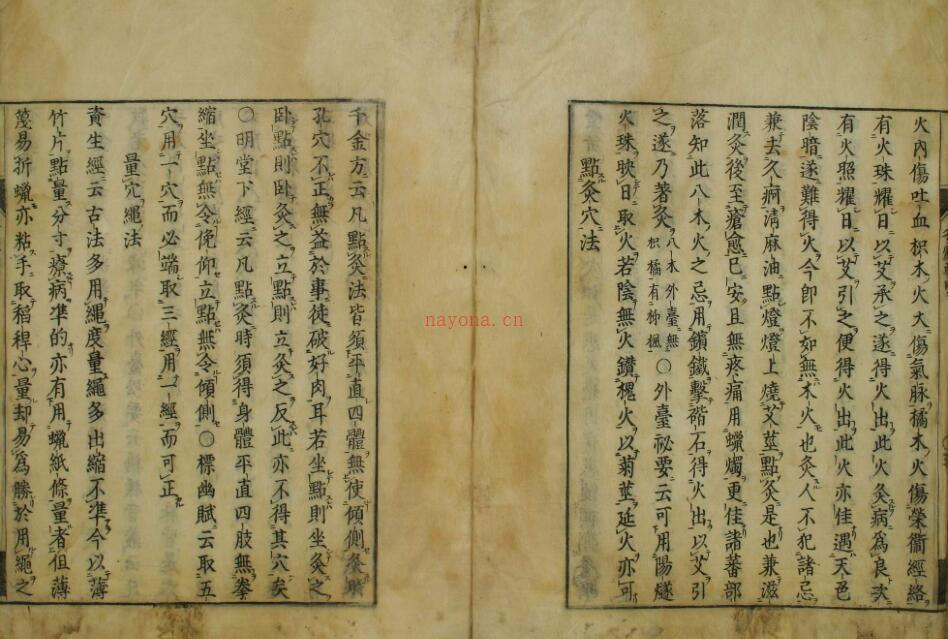 火內傷吐血枳木火大傷氣脉橘木火傷榮衞經絡
有火珠耀日以艾承之遂得火出此火灸病爲良次
有火照耀日以艾引之便得火出此火亦佳遇天色
陰暗遂難得火今卽不如無木火也灸人不犯諸忌
兼去久痾淸麻油點燈燈上燒艾莖點灸是也兼滋
潤灸後至瘡愈已安且無疼痛用蠟燭更佳諸蕃部
落知此八木火之忌用鑌鐵擊䃈石得火出以艾引
之遂乃著灸八木外臺無枳橘有柳楓○外臺祕要云可用陽燧
火珠映日取火若陰無火鑽槐火以菊莖延火亦可
點灸穴法
千金方云凡點灸法皆須平直四體無使傾側灸時
孔穴不正無益於事徒破好肉耳若坐點則坐灸之
臥點則臥灸之立點則立灸之反此亦不得其穴矣
○明堂下經云凡點灸時須得身體平直四肢無拳
縮坐點無令俛仰立點無令傾側○標幽賦云取五
穴用一穴而必端取三經用一經而可正
量穴繩法
資生經云古法多用繩度量繩多出縮不準今以薄
竹片點量分寸療病準的亦有用蠟紙條量者但薄
篾易折蠟亦粘手取稻稈心量却易爲勝於用繩之
nayona.cn